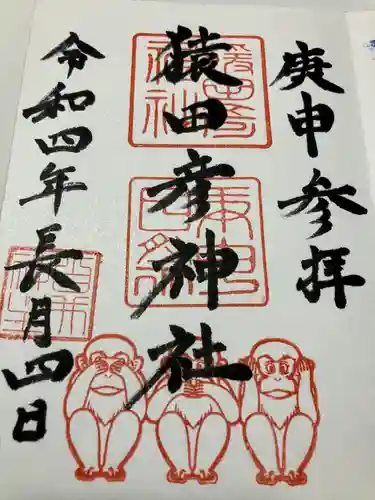 庚申参拝
猿田彦神社
令和四年長月四日